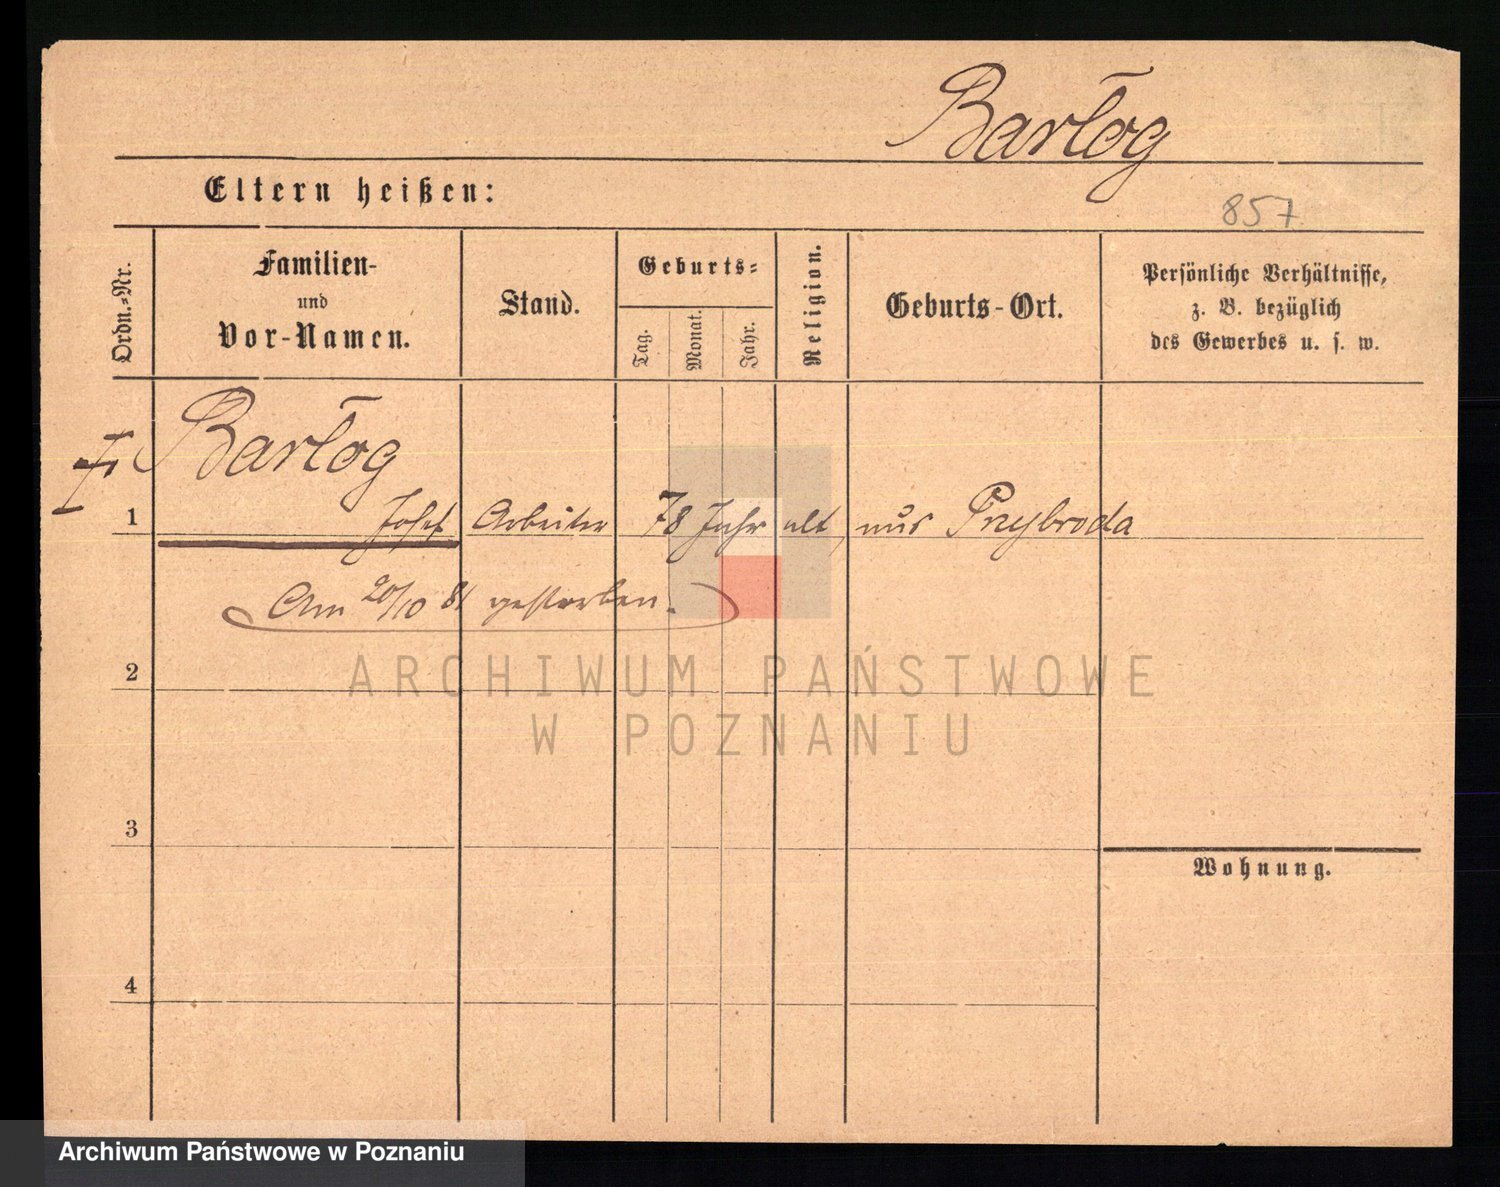 Barłog
Eltern heißen:
857
Ordn.-Nr.
Familien-
und
Vor-Namen.
Stand.
Geburts-
Tag.
Monat.
Jahr.
Religion.
Geburts-Ort.
Persönliche Verhältnisse,
z. B. bezüglich
des Gewerbes u. s. w.
Barłog
1 Josef Arbeiter 78 Jahr alt, aus Przybroda
Am 20/10 81 gestorben.
2
ARCHIWUM PAŃSTWOWE
W POZNANIU
3
Wohnung.
4
Archiwum Państwowe w Poznaniu